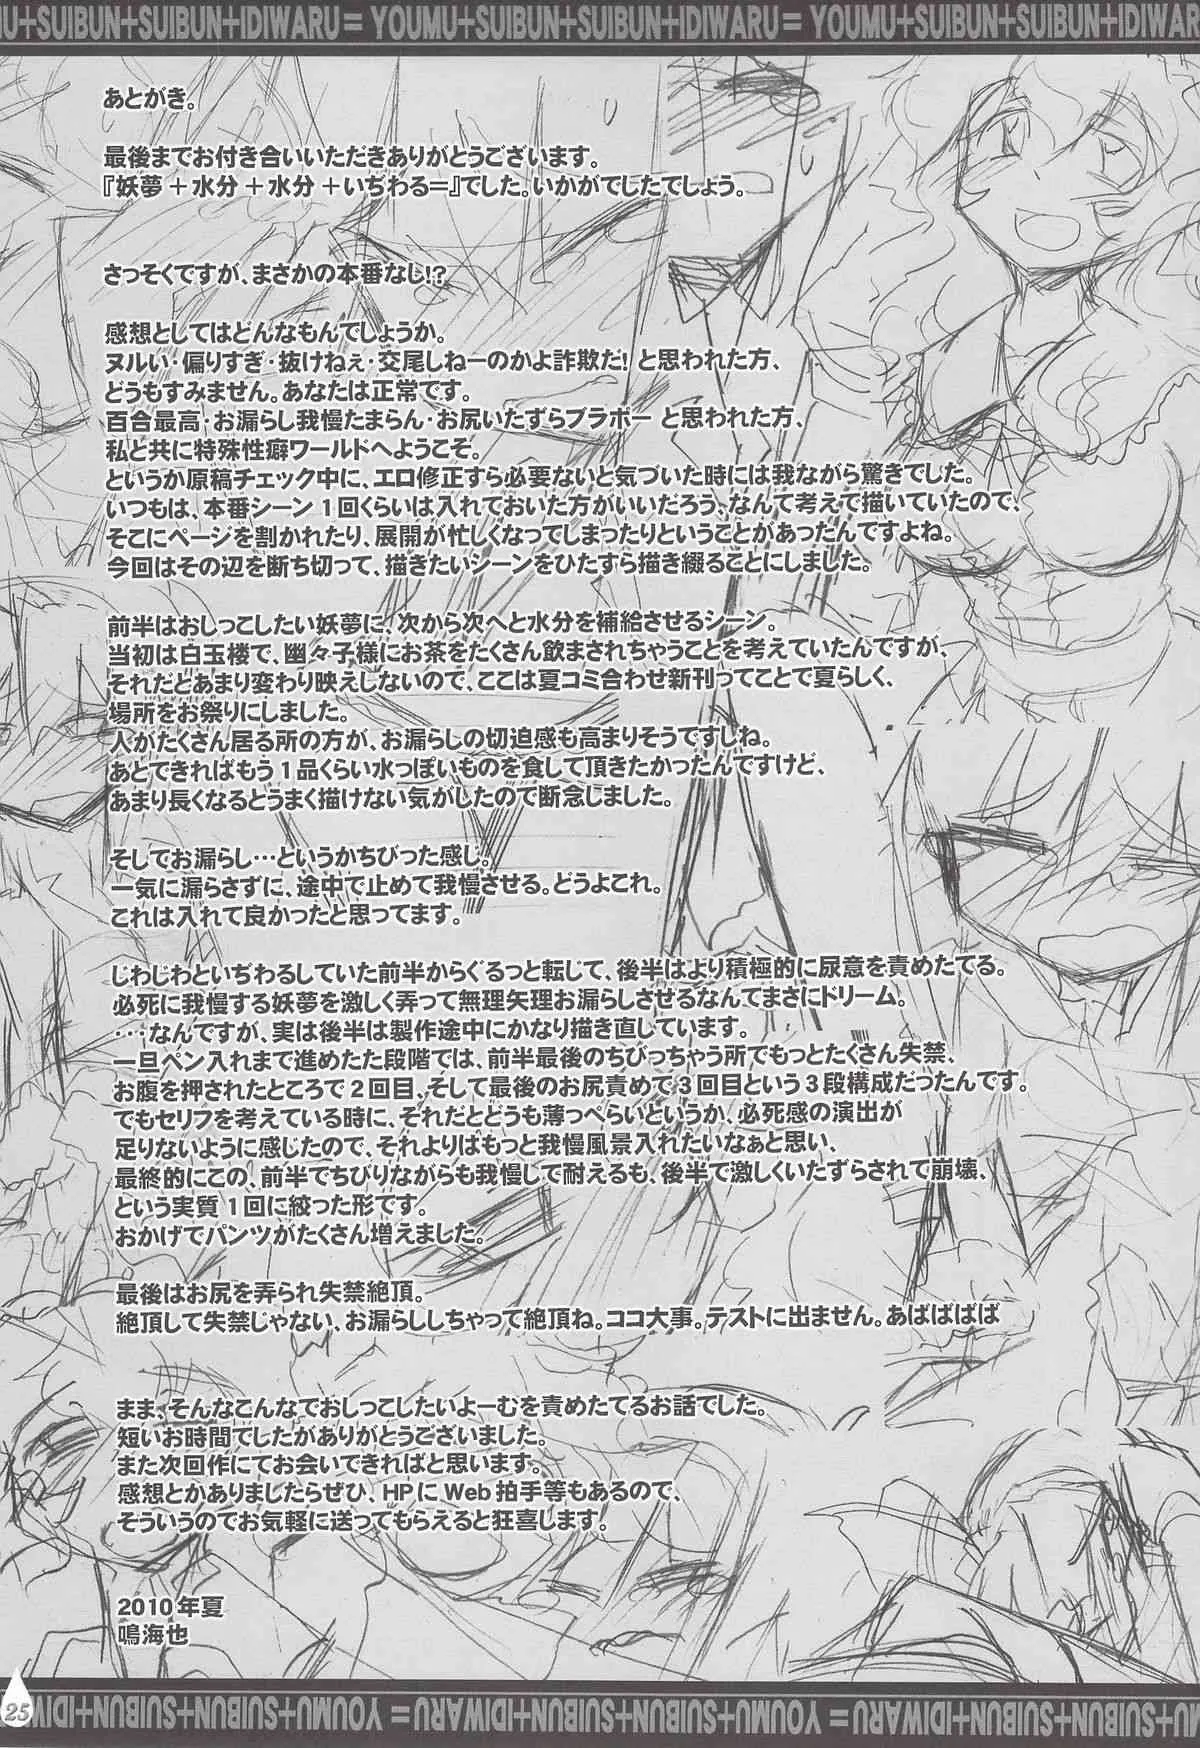 MU+SUIBUN+SUIBUN+IDIWARU= YOUMU+SUIBUN+SUIBUN+IDIWARU=
あとがき。
最後までお付き合いいただきありがとうございます。
『妖夢＋水分＋水分＋いぢわる＝』でした。いかがでしたでしょう。
さっそくですが、まさかの本番なし!?
感想としてはどんなもんでしょうか。
ヌルい・偏りすぎ・抜けねぇ・交尾しねーのかよ詐欺だ! と思われた方、
どうもすみません。あなたは正常です。
百合最高・お漏らし我慢たまらん・お尻いたずらブラボー と思われた方、
私と共に特殊性癖ワールドへようこそ。
というか原稿チェック中に、エロ修正すら必要ないと気づいた時には我ながら驚きでした。
いつもは、本番シーン1回くらいは入れておいた方がいいだろう、なんて考えて描いていたので、
そこにページを割かれたり、展開が忙しくなってしまったりということがあったんですよね。
今回はその辺を断ち切って、描きたいシーンをひたすら描き綴ることにしました。
前半はおしっこしたい妖夢に、次から次へと水分を補給させるシーン。
当初は白玉楼で、幽々子様にお茶をたくさん飲まされちゃうことを考えていたんですが、
それだとあまり変わり映えしないので、ここは夏コミ合わせ新刊ってことで夏らしく、
場所をお祭りにしました。
人がたくさん居る所の方が、お漏らしの切迫感も高まりそうですしね。
あとできればもう1品くらい水っぽいものを食して頂きたかったんですけど、
あまり長くなるとうまく描けない気がしたので断念しました。
そしてお漏らし…というかちびった感じ。
一気に漏らさずに、途中で止めて我慢させる。どうよこれ。
これは入れて良かったと思ってます。
じわじわといぢわるしていた前半からぐるっと転じて、後半はより積極的に尿意を責めたてる。
必死に我慢する妖夢を激しく弄って無理矢理お漏らしさせるなんてまさにドリーム。
・・・なんですが、実は後半は製作途中にかなり描き直しています。
一旦ペン入れまで進めたた段階では、前半最後のちびっちゃう所でもっとたくさん失禁、
お腹を押されたところで2回目、そして最後のお尻責めで3回目という3段構成だったんです。
でもセリフを考えている時に、それだとどうも薄っぺらいというか、必死感の演出が
足りないように感じたので、それよりはもっと我慢風景入れたいなぁと思い、
最終的にこの、前半でちびりながらも我慢して耐えるも、後半で激しくいたずらされて崩壊、
という実質1回に絞った形です。
おかげでパンツがたくさん増えました。
最後はお尻を弄られ失禁絶頂。
絶頂して失禁じゃない、お漏らししちゃって絶頂ね。ココ大事。テストに出ません。あばばばば
まま、そんなこんなでおしっこしたいよーむを責めたてるお話でした。
短いお時間でしたがありがとうございました。
また次回作にてお会いできればと思います。
感想とかありましたらぜひ、HPにWeb拍手等もあるので、
そういうのでお気軽に送ってもらえると狂喜します。
2010年夏
鳴海也
25
MU+SUIBUN+SUIBUN+IDIWARU= YOUMU+SUIBUN+SUIBUN+IDIW